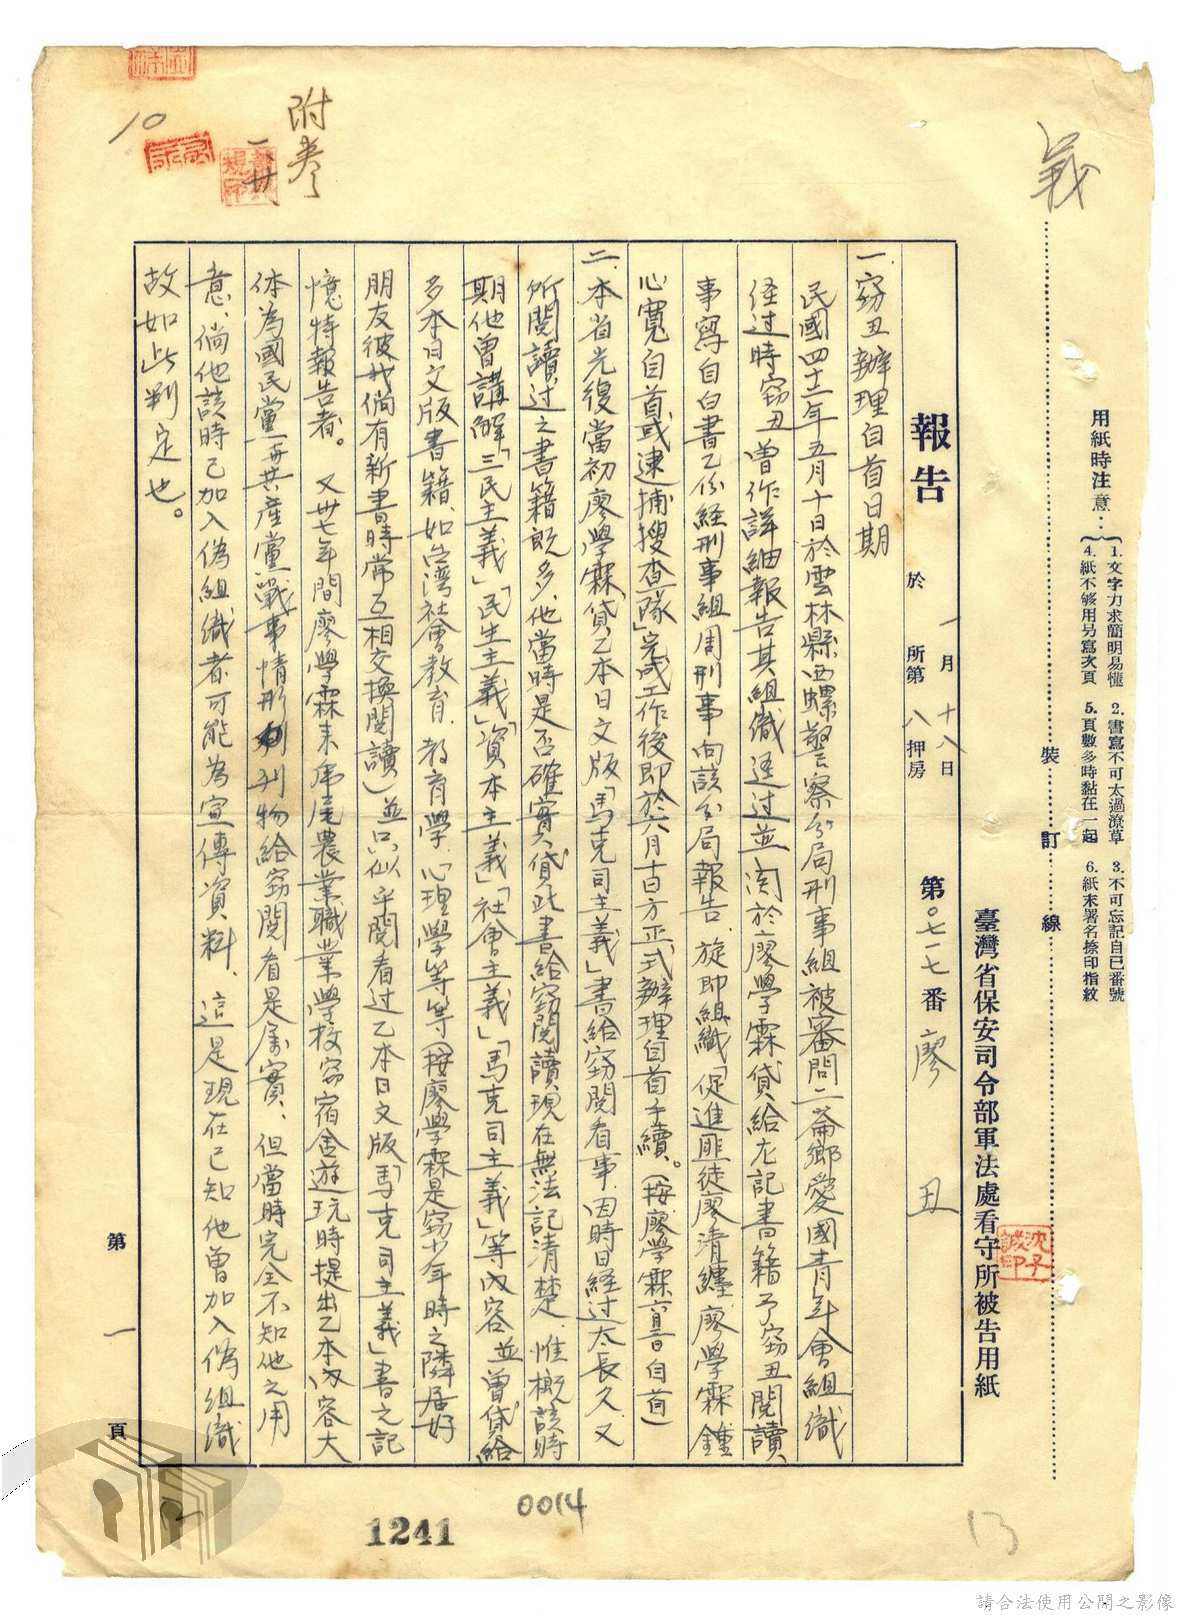 義
用紙時注意：
1. 文字力求簡明易懂 2. 書寫不可太過潦草 3. 不可忘記自已番號
4. 紙不够用另寫次頁 5. 頁數多時黏在一起 6. 紙末署名捺印指紋
裝 訂 線
臺灣省保安司令部軍法處看守所被告用紙
沈子誠印
報告 於 一月十八日 所第八押房 第〇七一七番 廖丑
一. 竊丑辦理自首日期
民國四十二年五月十日於雲林縣西螺警察分局刑事組被審問二崙鄉愛國青年會組織
経过時竊丑曾作詳細報告其組織逕过並関於廖學霖貸給左記書籍予竊丑閱讀
事寫自白書乙份経刑事組周刑事向該分局報告. 旋即組織「促進匪徒廖清纏廖學霖鍾
心寬自首或逮捕搜查隊」完成工作後即於六月十日方正式辦理自首手續。(按廖學霖亦自首)
二. 本省光復當初廖學霖貸乙本日文版「馬克司主義」書給竊閱看事. 因時日経过太長久又
所閱讀过之書籍既多. 他當時是否確實貸此書給竊閱讀. 現在無法記清楚. 惟概該時
期他曾講解「三民主義」「民生主義」「資本主義」「社會主義」「馬克司主義」等內容. 並曾貸給
多本日文版書籍. 如台湾社會教育. 教育學. 心理學等等(按廖學霖是竊少年時之隣居好
朋友彼我倘有新書時常互相交換閱讀)並只似乎閱看过乙本日文版「馬克司主義」書之記
憶特報告者。 又卅七年間廖學霖来虎尾農業職業學校竊宿舍遊玩時提出乙本內容大
体為國民黨再共產黨戰事情形刊物給竊閱看是屬實. 但當時完全不知他之用
意. 倘他該時已加入偽組織者. 可能為宣傳資料. 這是現在已知他曾加入偽組織
故如此判定也。
第一頁
附卷
一廿
10
0014
1241
13
請合法使用公開之影像